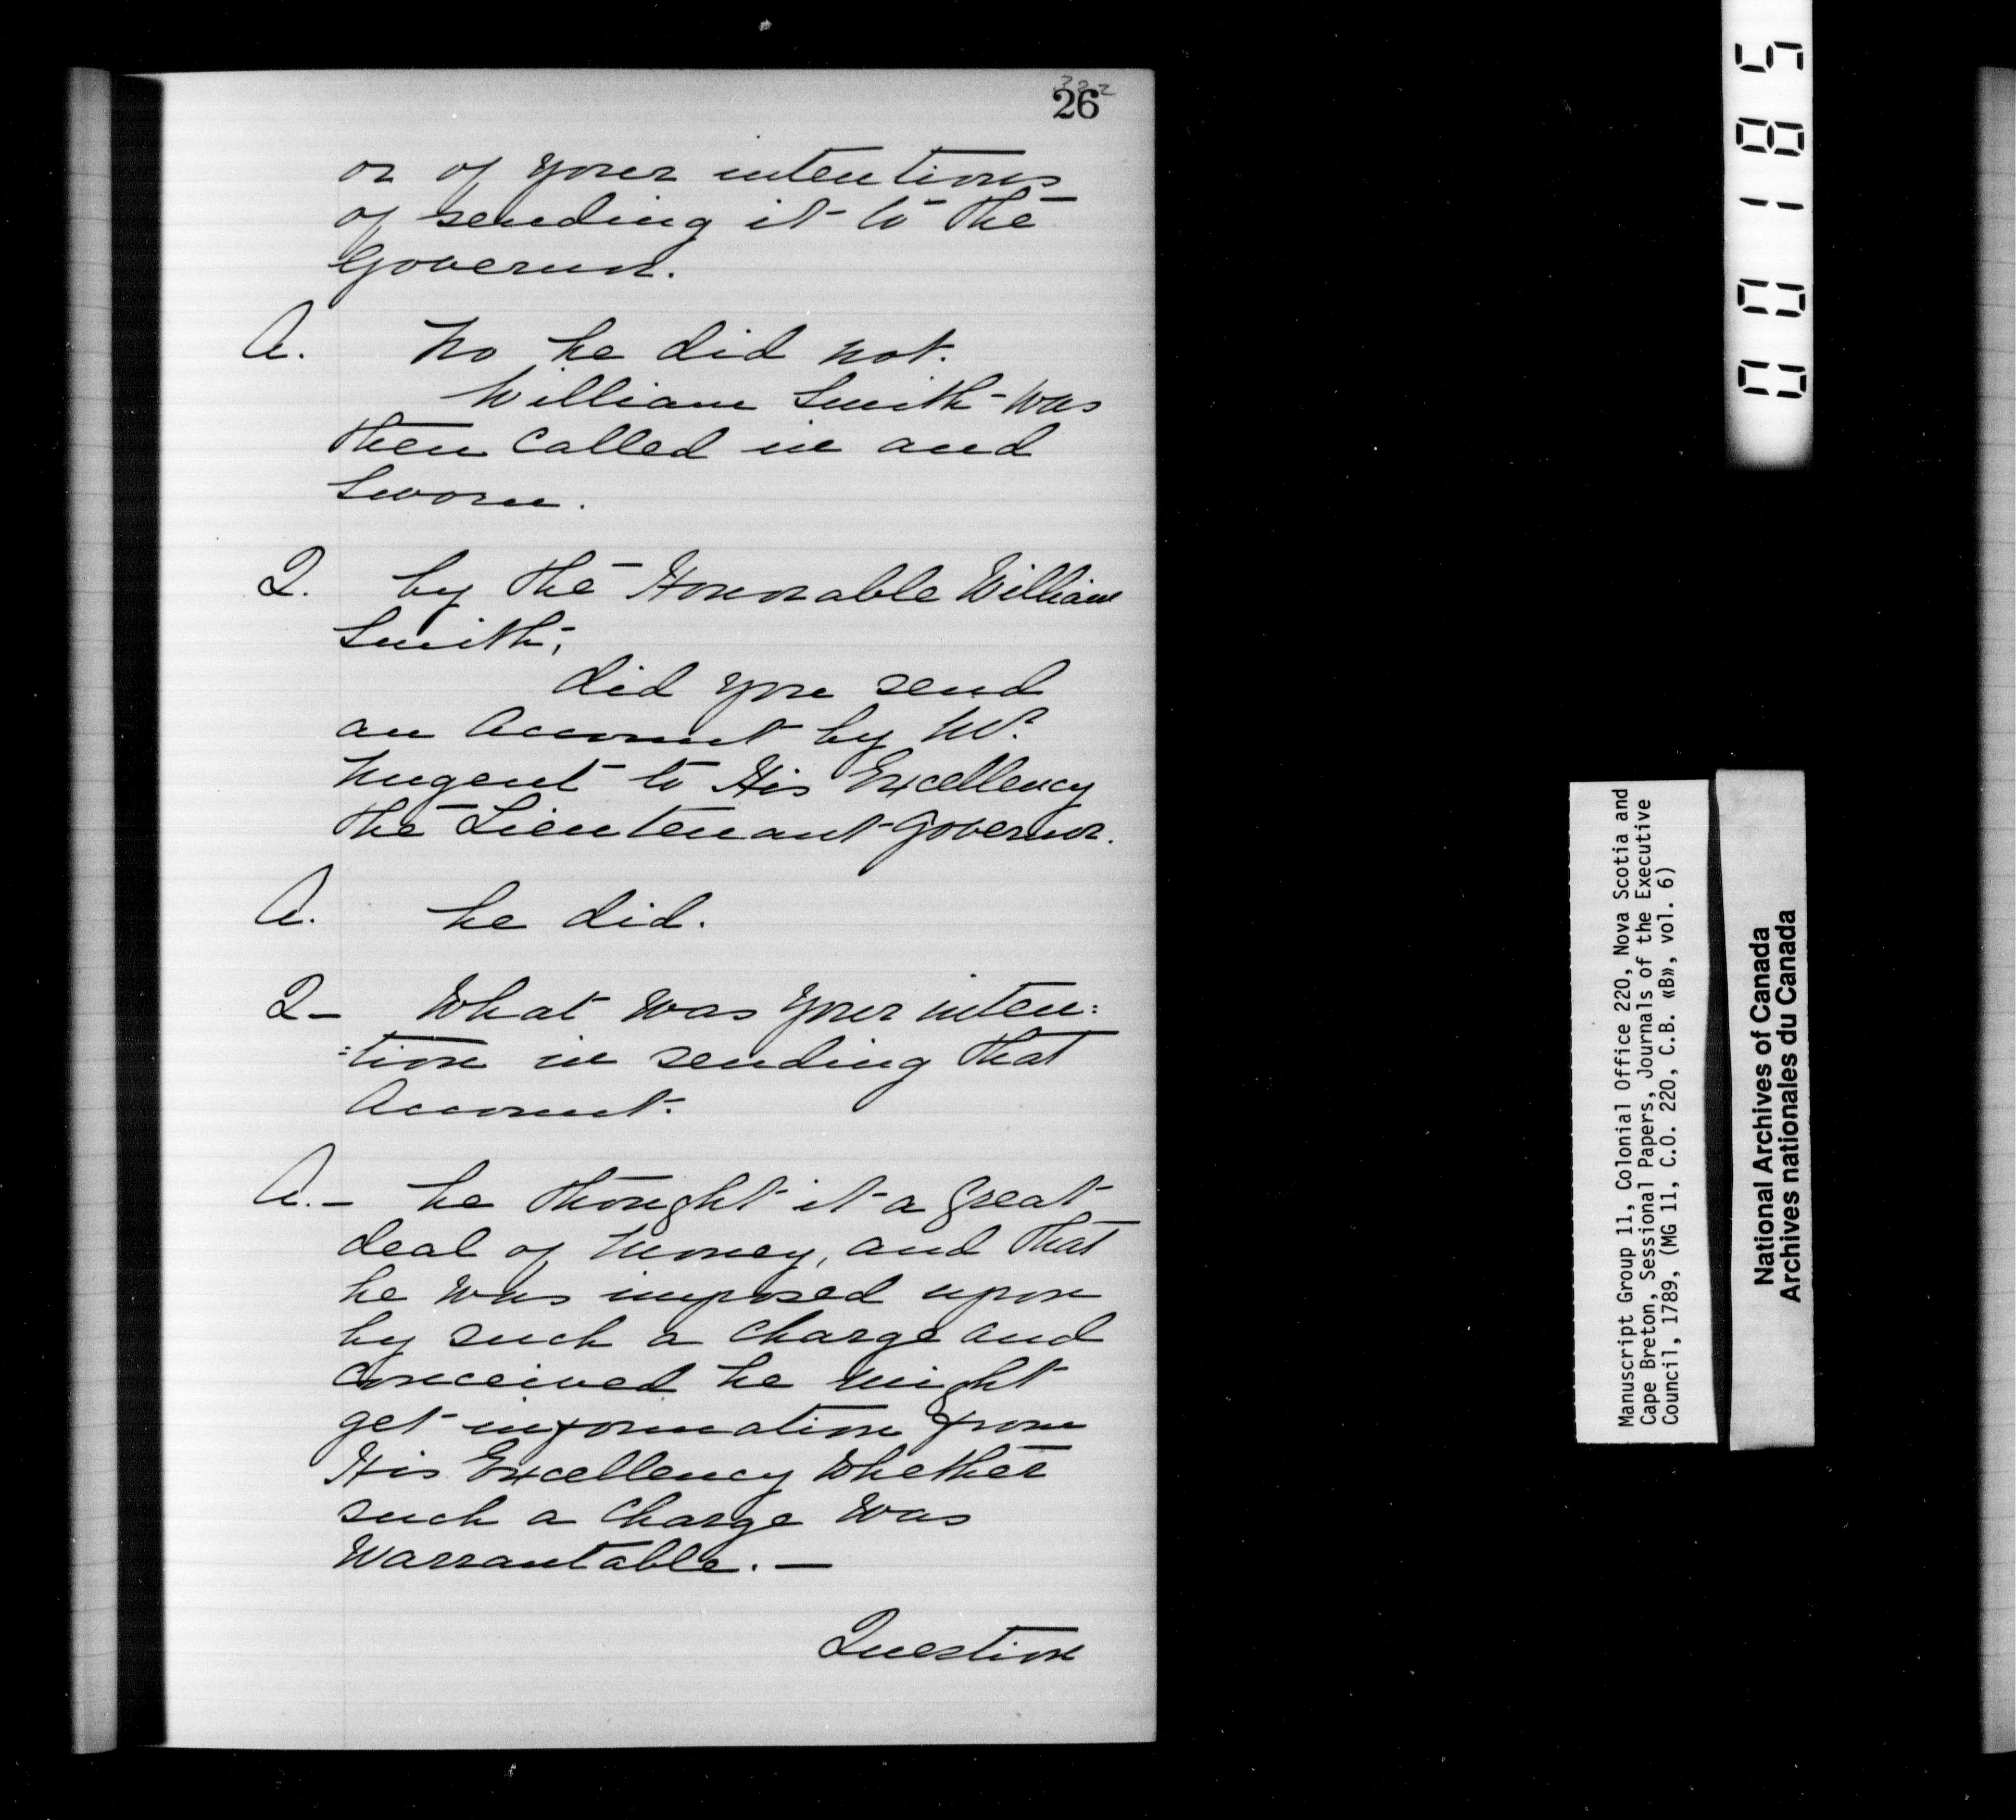 26
or of your intentions
of sending it to the
Governor.
A. No he did not.
William Smith was
then called in and
Sworn.
Q. by the Honorable William
Smith;
did you send
an Account by Mr.
Nugent to His Excellency
the Lieutenant Governor.
A. he did.
Q– What was your inten:
:tion in sending that
Account.
A.– he thought it a great
deal of Money, and that
he was imposed upon
by such a charge and
conceived he might
get information from
His Excellency Whether
such a charge was
Warrantable.–
Question
00185
Manuscript Group 11, Colonial Office 220, Nova Scotia and
Cape Breton, Sessional Papers, Journals of the Executive
Council, 1789, (MG 11, C.O. 220, C.B. «B», vol. 6)
National Archives of Canada
Archives nationales du Canada